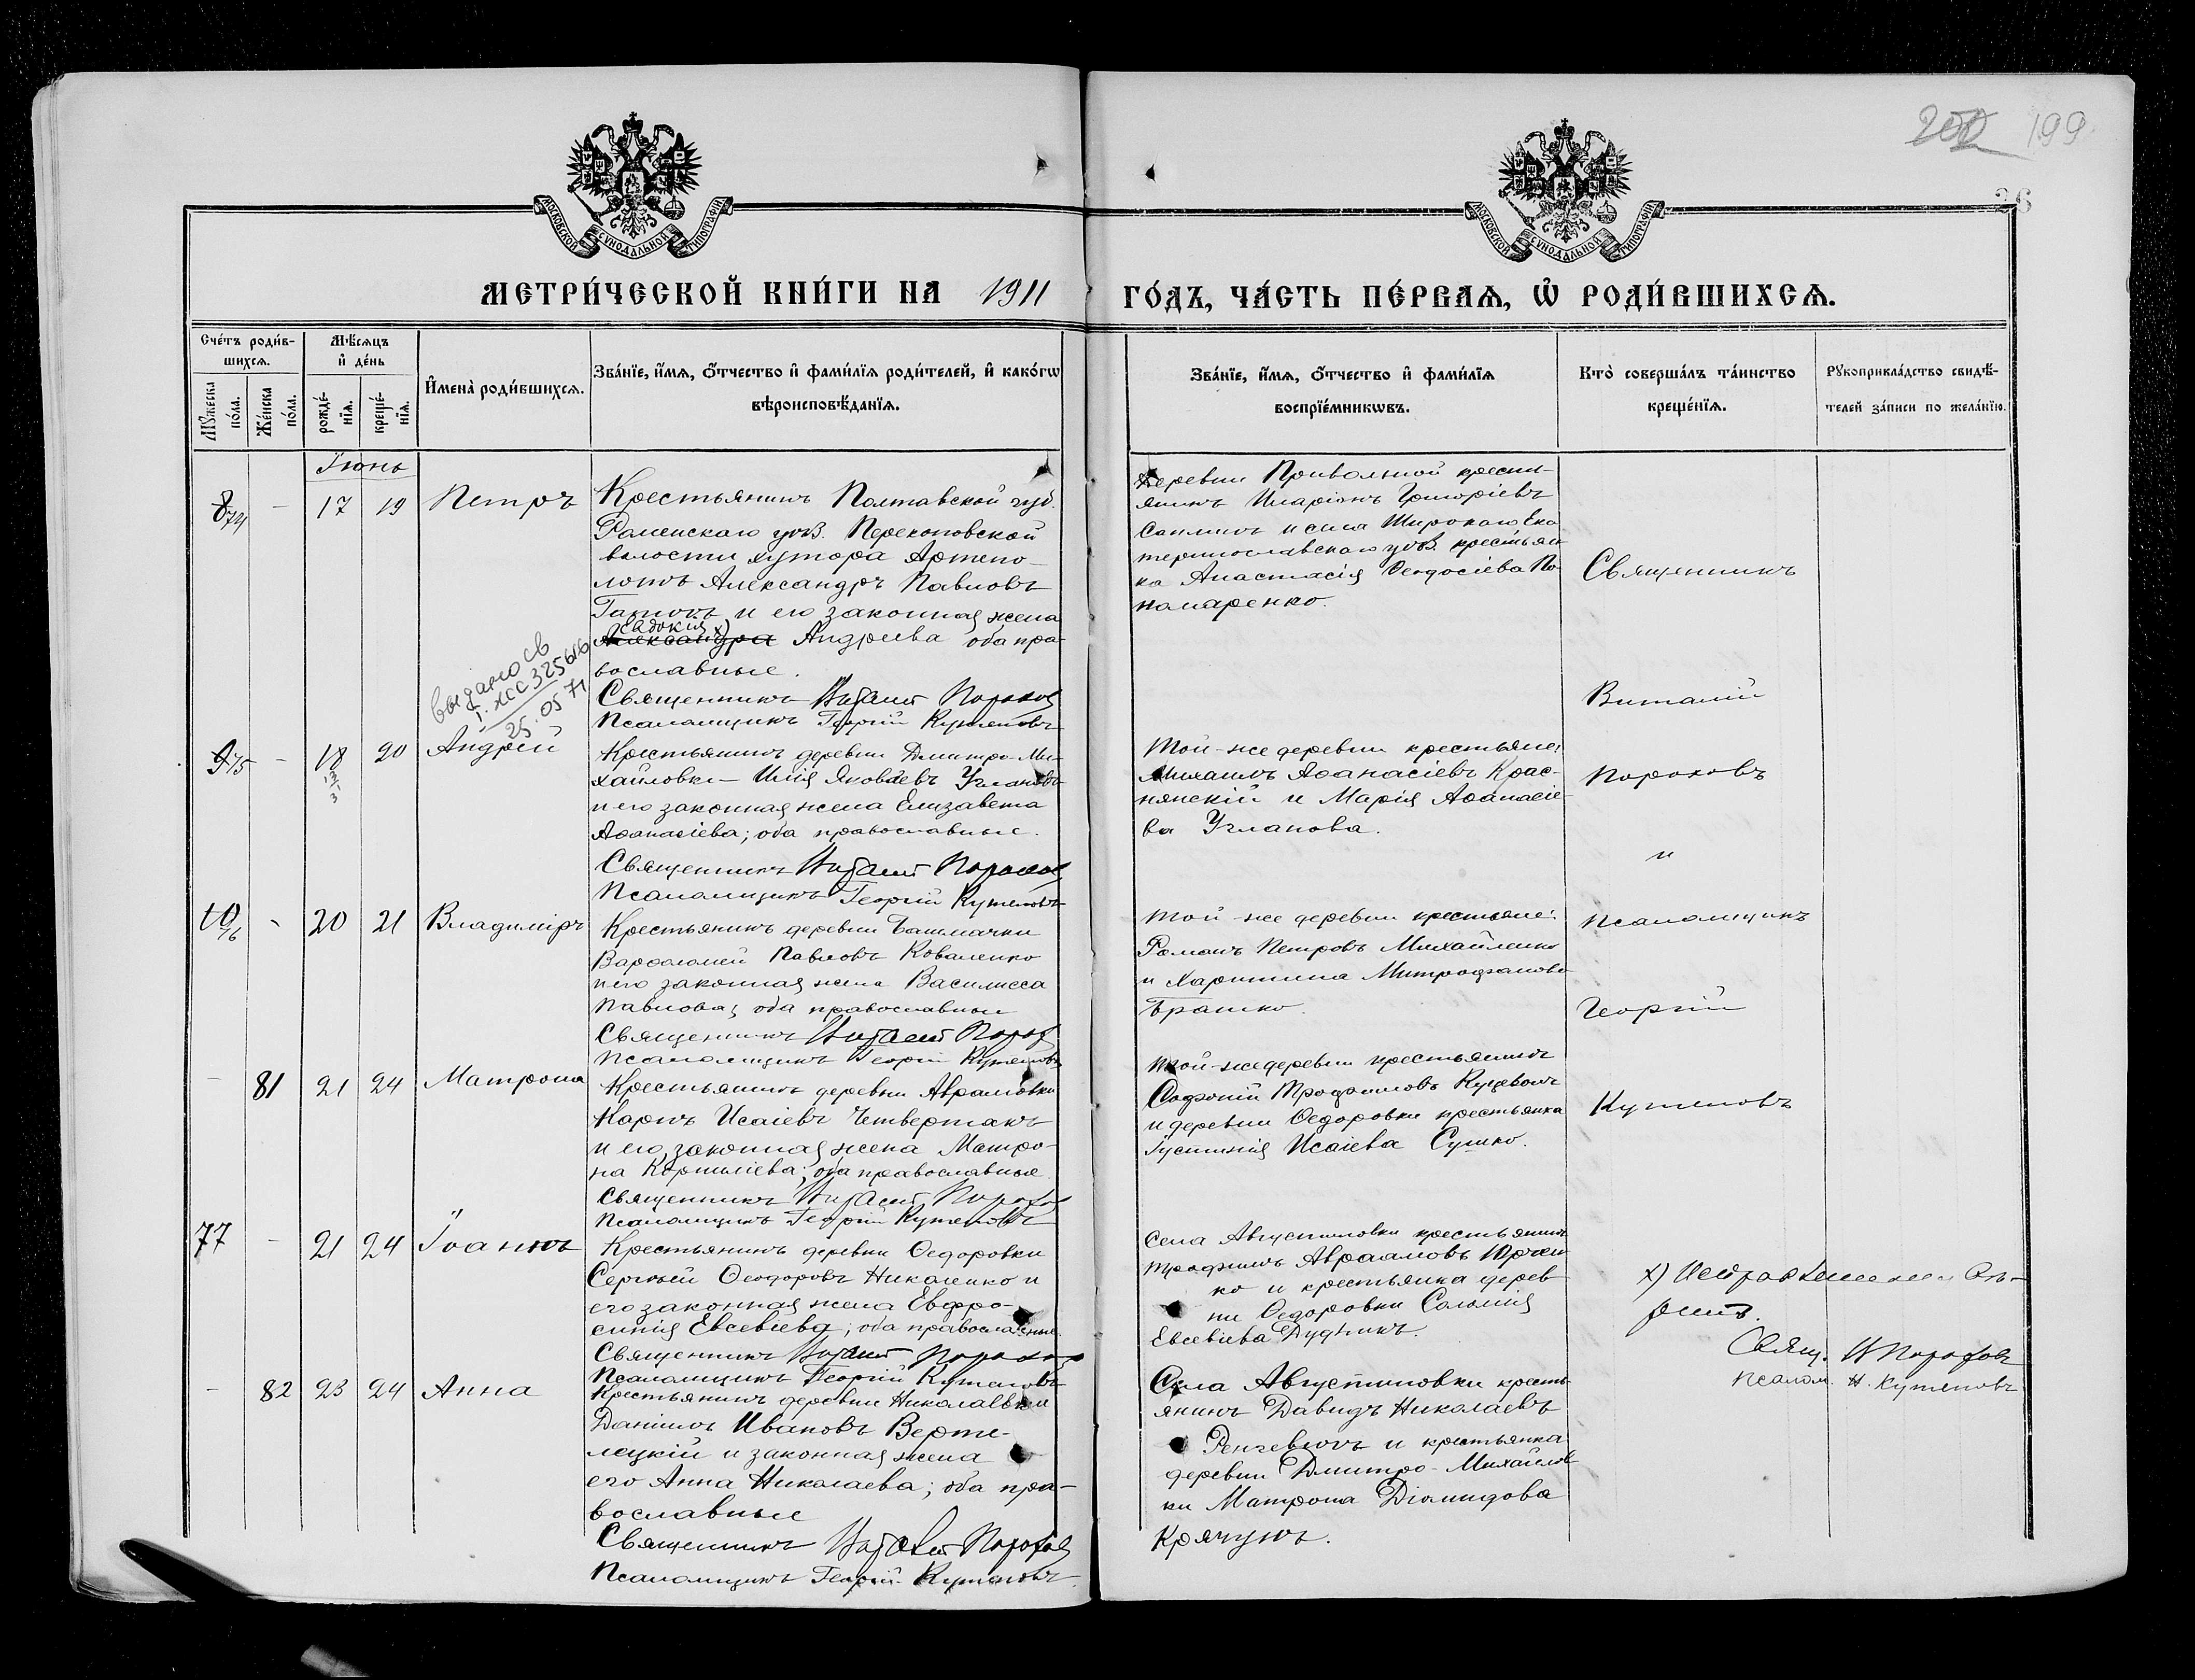 202 199
36
МОСКОВСКОЙ СѴНОДАЛЬНОЙ ТИПОГРАФІИ
МОСКОВСКОЙ СѴНОДАЛЬНОЙ ТИПОГРАФІИ
МЕТРИ́ЧЕСКОЙ КНИ́ГИ НА 1911
ГО́ДЪ, ЧА́СТЬ ПЕ́РВАѦ, Ѡ҆ РОДИ́ВШИХСѦ.
Сче́тъ роди́в-
шихсѧ.
Мꙋжеска по́ла.
Же́нска по́ла.
Мѣ́сѧцъ
и҆ де́нь
рожде́-
нїѧ.
креще́-
нїѧ.
И҆мена̀ роди́вшихсѧ.
Зва́нїе, и҆́мѧ, ѻ҆́тчество и҆ фами́лїѧ роди́телей, и҆ како́гѡ
вѣроисповѣ́данїѧ.
Зва́нїе, и҆́мѧ, ѻ҆́тчество и҆ фами́лїѧ
воспрїе́мникѡвъ.
Кто̀ соверша́лъ та́инство
креще́нїѧ.
Рꙋкоприкла́дство свидѣ́-
телей за́писи по жела́нїю.
Іюнь
8 74 - 17 19 Петръ
Крестьянинъ Полтавской губ.
Роменскаго уѣз. Перекоповской
волости хутора Артепо-
лотъ Александръ Павловъ
и его законная жена
Евдокія х)
Александра Андреева оба пра-
вославные.
Священникъ Виталій Пороховъ
Псаломщикъ Георгій Кутеповъ
Деревни Привольной крестья-
янинъ Иларіонъ Григоріевъ
и села Широкаго Ека-
теринославскаго уѣз. крестьян-
ка Анастасія Феодосіева По-
номаренко.
Выдано св
I. ХСС 325616
25.05 71
9 75 - 18 20 Андрей
Крестьянинъ деревни Дмитро-Ми-
хайловки - Илія Яковлевъ Углановъ
и его законная жена Елизавета
Аѳанасіева; оба православные.
Священникъ Виталій Пороховъ
Псаломщикъ Георгій Кутеповъ
Той-же деревни крестьяне:
Михаилъ Аѳанасіевъ Крас-
нянскій и Марія Аѳанасіе-
ва Угланова.
10 76 - 20 21 Владиміръ
Крестьянинъ деревни Башмачки
Варѳоломей Павловъ Коваленко
и его законная жена Василисса
Павлова; оба православные
Священникъ Виталій Порох
Псаломщикъ Георгій Кутеповъ
Той-же деревни крестьяне:
Романъ Петровъ Михайленко
и Харитина Митрофанова
Брашко.
- 81 21 24 Матрона
Крестьянинъ деревни Аврамовки
Карпъ Исаіевъ Четвертакъ
и его законная жена Матро-
на Корниліева; оба православные.
Священникъ Виталій Порохов
Псаломщикъ Георгій Кутеповъ
Той-же деревни крестьянинъ
Софроній Трофимовъ Куцеволъ
и деревни Ѳедоровки крестьянка
Іустинія Исаіева Сушко.
77 - 21 24 Іоаннъ
Крестьянинъ деревни Ѳедоровки
Сергѣй Ѳеодоровъ Николенко и
его законная жена Евфро-
синія Евсевіева; оба православные.
Священникъ Виталій Порохов
Псаломщикъ Георгій Кутеповъ
Села Августиновки крестьянинъ
Трофимъ Авраамовъ Юрчен-
ко и крестьянка дерев-
ни Ѳедоровки Саломія
Евсевіева Дудникъ.
- 82 23 24 Анна
Крестьянинъ деревни Николаевки
Даніилъ Ивановъ Верте-
лецкій и законная жена
его Анна Николаева; оба пра-
вославные
Священникъ Виталій Порохов
Псаломщикъ Георгій Кутеповъ
Села Августиновки кресть-
янинъ Давидъ Николаевъ
и крестьянка
деревни Дмитро-Михайлов-
ки Матрона Діомидова
Крячунъ.
Священникъ
Виталій
Пороховъ
и
Псаломщикъ
Георгій
Кутеповъ
х)
Свящ. В Пороховъ
Псалом. Кутеповъ